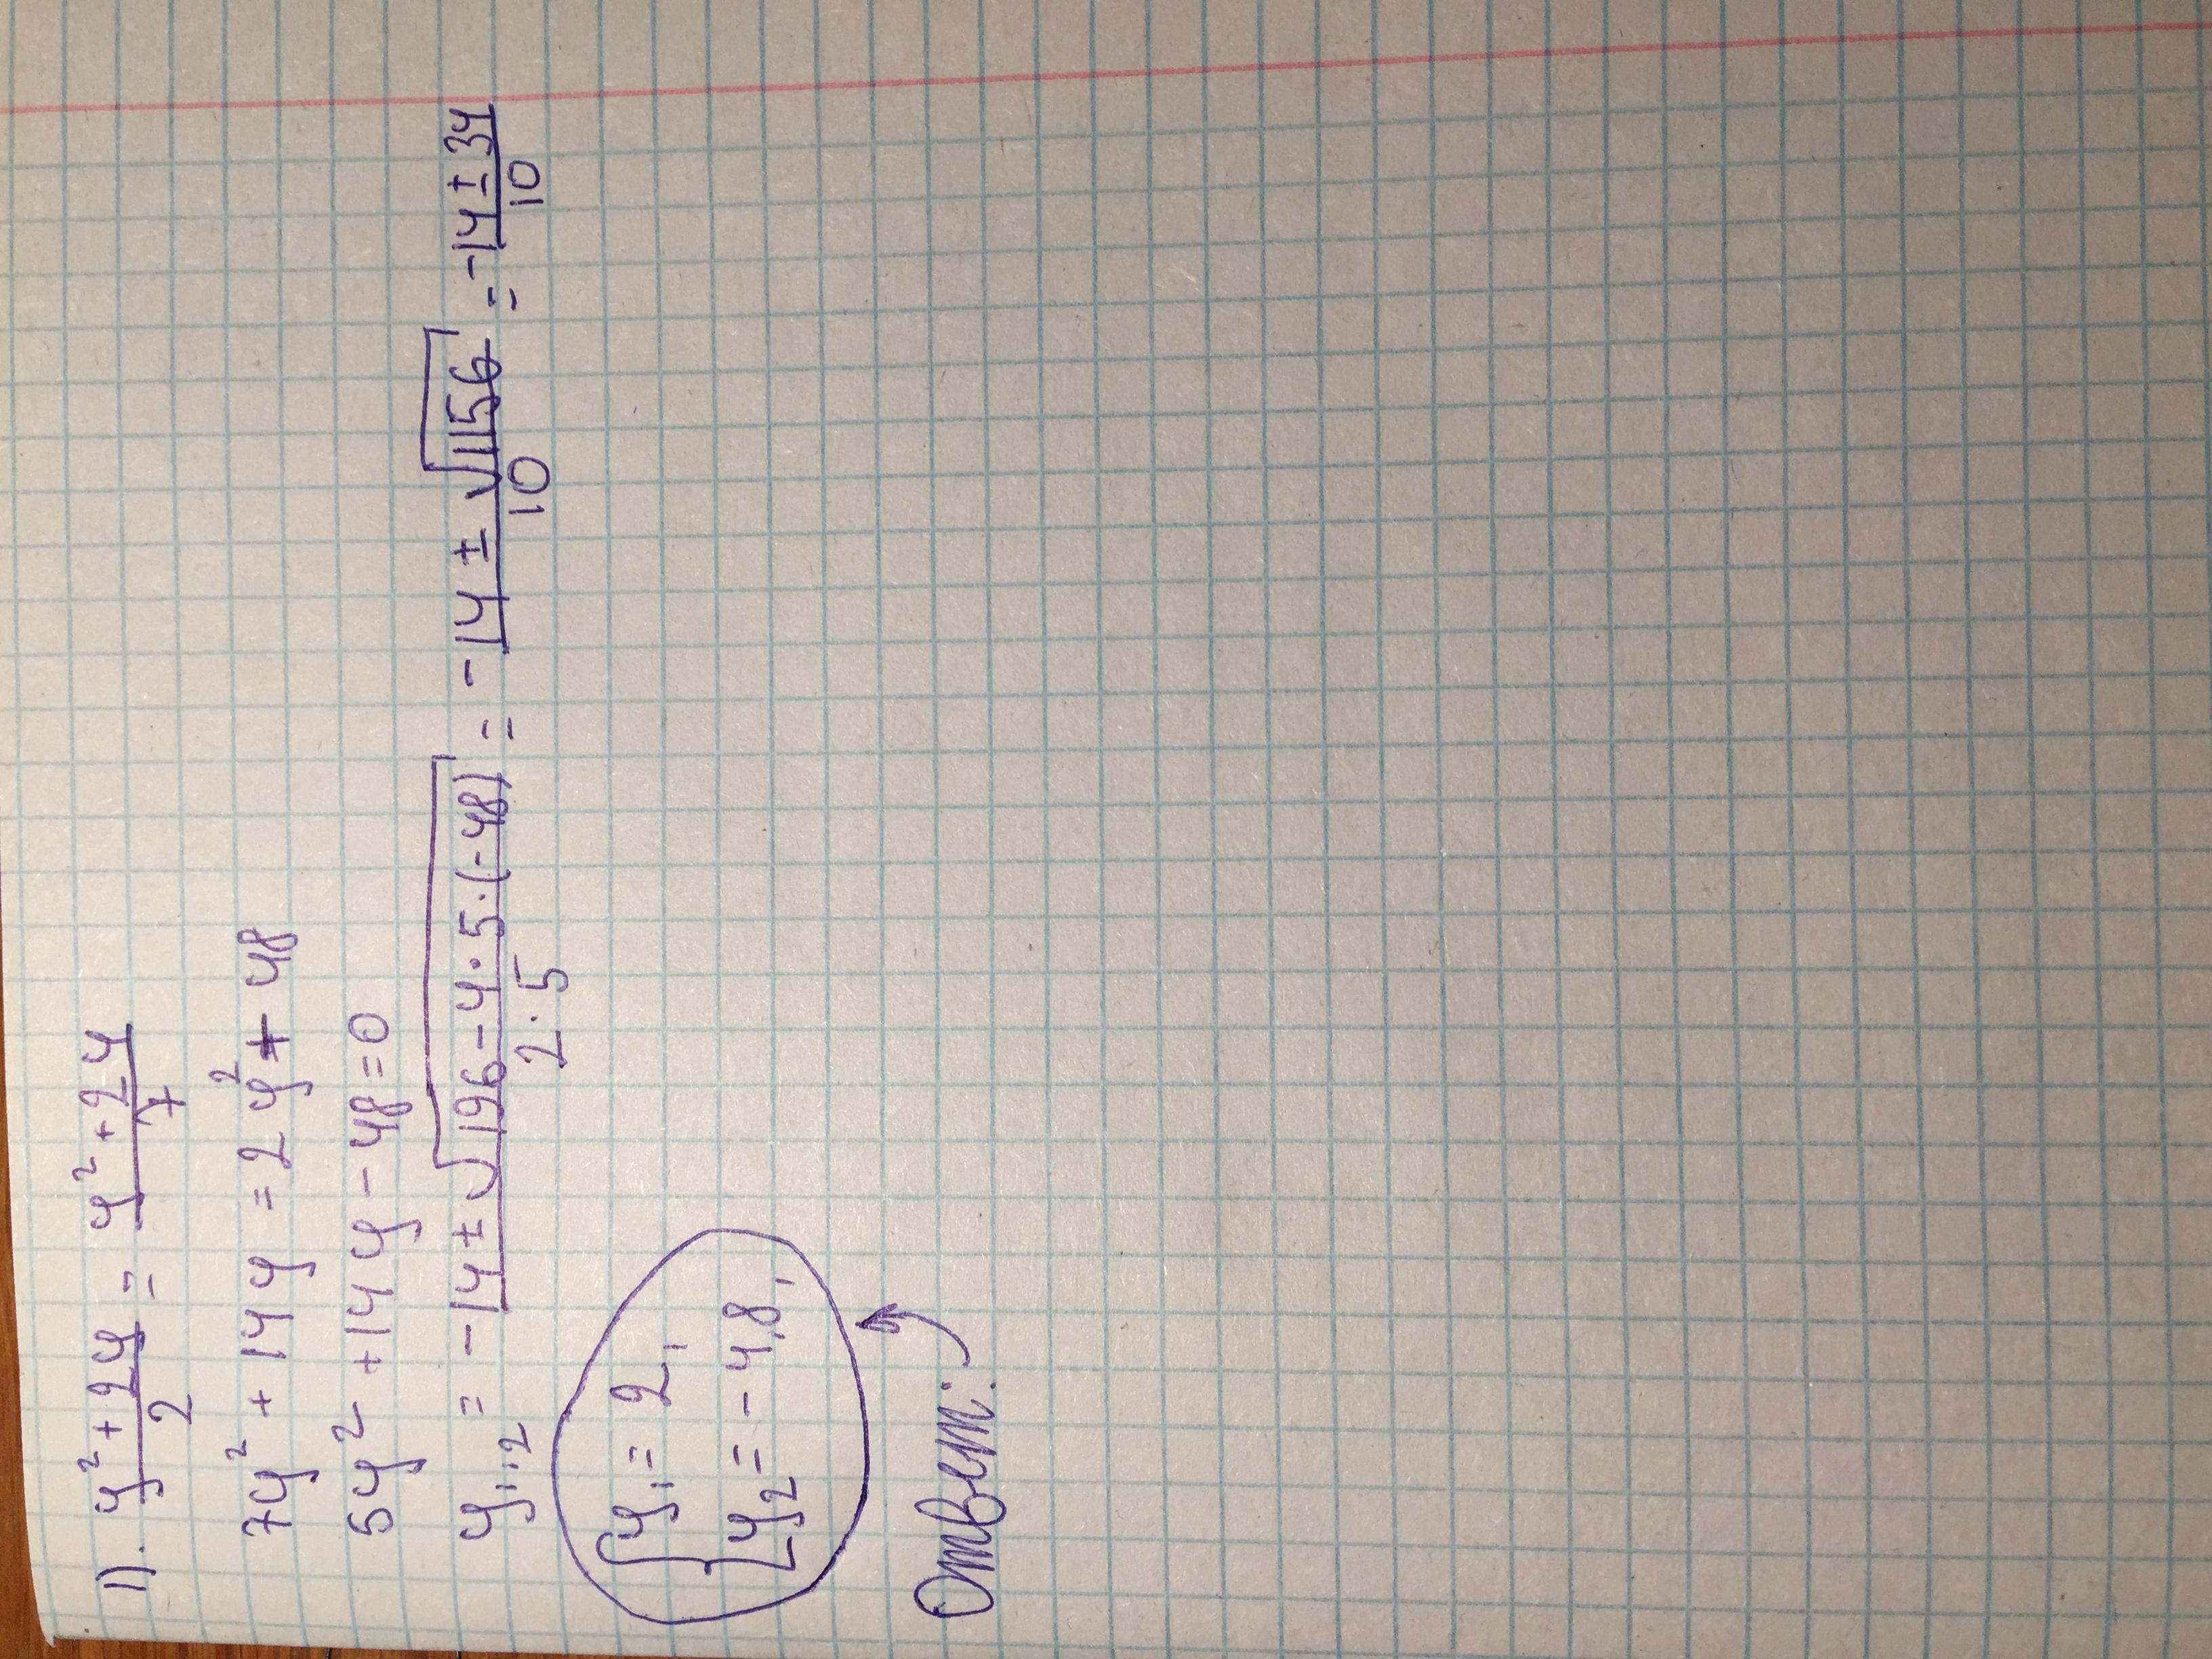 1). y²+2y/2 = y²+24/7
7y² + 14y = 2y² + 48
5y² + 14y - 48 = 0
y₁,₂ = -14 ± √196-4·5·(-48)/2·5 = -14 ± √1156/10 = -14 ± 34/10
{ y₁ = 2,
y₂ = -4,8,
Ответ: